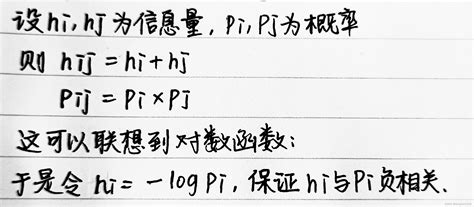 设hi,hj为信息量,Pi,Pj为概率
则 hij=hi+hj
Pij=Pi×Pj
这可以联想到对数函数:
于是令hi=-logPi,保证hi与Pi负相关.